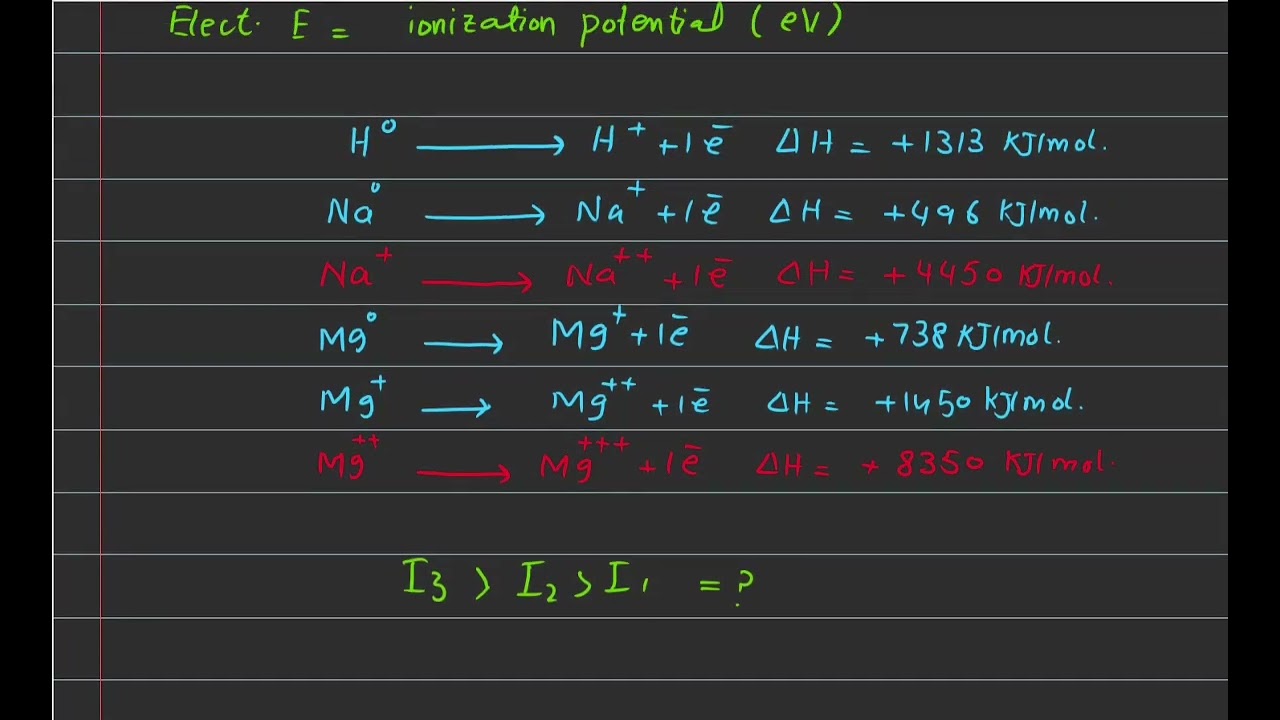 Elect. E = ionization potential (eV)
H⁰ ⟶ H⁺ + 1ē ΔH = +1313 KJ/mol.
Na⁰ ⟶ Na⁺ + 1ē ΔH = +496 KJ/mol.
Na⁺ ⟶ Na⁺⁺ + 1ē ΔH = +4450 KJ/mol.
Mg⁰ ⟶ Mg⁺ + 1ē ΔH = +738 KJ/mol.
Mg⁺ ⟶ Mg⁺⁺ + 1ē ΔH = +1450 KJ/mol.
Mg⁺⁺ ⟶ Mg⁺⁺⁺ + 1ē ΔH = +8350 KJ/mol.
I₃ > I₂ > I₁ = ?